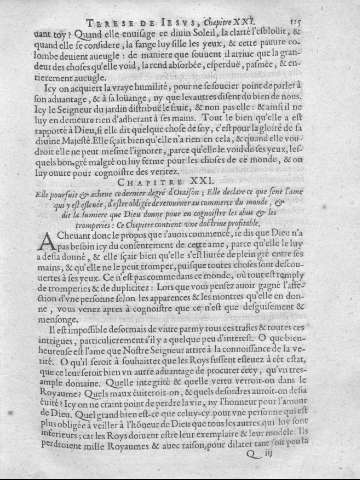 TERESE DE IESVS, Chapitre XXI. 115
uant toy? Quand elle enuisage ce diuin Soleil, la clarté l'esbloüit, &
quand elle se considere, la fange luy sille les yeux, & cette pauure co-
lombe deuient aueugle: de maniere que souuent il arriue que la gran-
deur des choses qu'elle void, la rend absorbée, esperduë, pasmée, & en-
tierement aueugle.
Icy on acquiert la vraye humilité, pour ne se soucier point de parler à
son aduantage, & à sa loüange, ny que les autres disent du bien de nous.
Icy le Seigneur du jardin distribuë le fruit, & non pas elle: & ainsi il ne
luy en demeure rien d'adherant à ses mains. Tout le bien qu'elle a est
rapporté à Dieu, si elle dit quelque chose de soy, c'est pour la gloire de sa
diuine Majesté. Elle sçait bien qu'elle n'a rien en cela, & quand elle vou-
droit elle ne peut mesme l'ignorer, parce qu'elle le void de ses yeux, les-
quels bon gré malgré on luy ferme pour les choses de ce monde, & on
luy ouure pour cognoistre des veritez.
CHAPITRE XXI.
Elle poursuit & acheue ce dernier degré d'Oraison; Elle declare ce que sent l'ame
qui y est esleuée, d'estre obligée de retourner au commerce du monde, &
dit la lumiere que Dieu donne pour en cognoistre les abus & les
tromperies: Ce Chapitre contient vne doctrine profitable.
ACheuant donc le propos que i'auois commencé, ie dis que Dieu n'a
pas besoin icy du consentement de cette ame, parce qu'elle le luy
a desia donné, & elle sçait bien qu'elle s'est liurée de plein gré entre ses
mains, & qu'elle ne le peut tromper, puisque toutes choses sont descou-
uertes à ses yeux. Ce n'est pas comme dans ce monde, où tout est remply
de tromperies & de duplicitez: Lors que vous pensez auoir gagné l'affe-
ction d'vne personne selon les apparences & les montres qu'elle en don-
ne, vous venez apres à cognoistre que ce n'est que desguisement &
mensonge.
Il est impossible desormais de viure parmy tous ces trafics & toutes ces
intrigues, particulierement s'il y a quelque peu d'interest. O que bien-
heureuse est l'ame que Nostre Seigneur attire à la connoissance de la ve-
rité. O qu'il seroit à souhaitter que les Roys fussent esleuez à cét estat,
que ce leur seroit bien vn autre aduantage de procurer cecy, qu'vn tres-
ample domaine. Quelle integrité & quelle vertu verroit-on dans le
Royaume? Quels maux éuiteroit-on, & quels desordres auroit-on desia
éuité? Icy on ne craint point de perdre la vie, ny l'honneur pour l'amour
de Dieu. Quel grand bien est-ce que celuy-cy pour vne personne qui est
plus obligée à veiller à l'hõneur de Dieu que tous les autres qui luy sont
inferieurs; car les Roys doiuent estre leur exemplaire & leur modele. Ils
perdroient mille Royaumes & auec raison, pour dilater tant soit peu la
Q iij